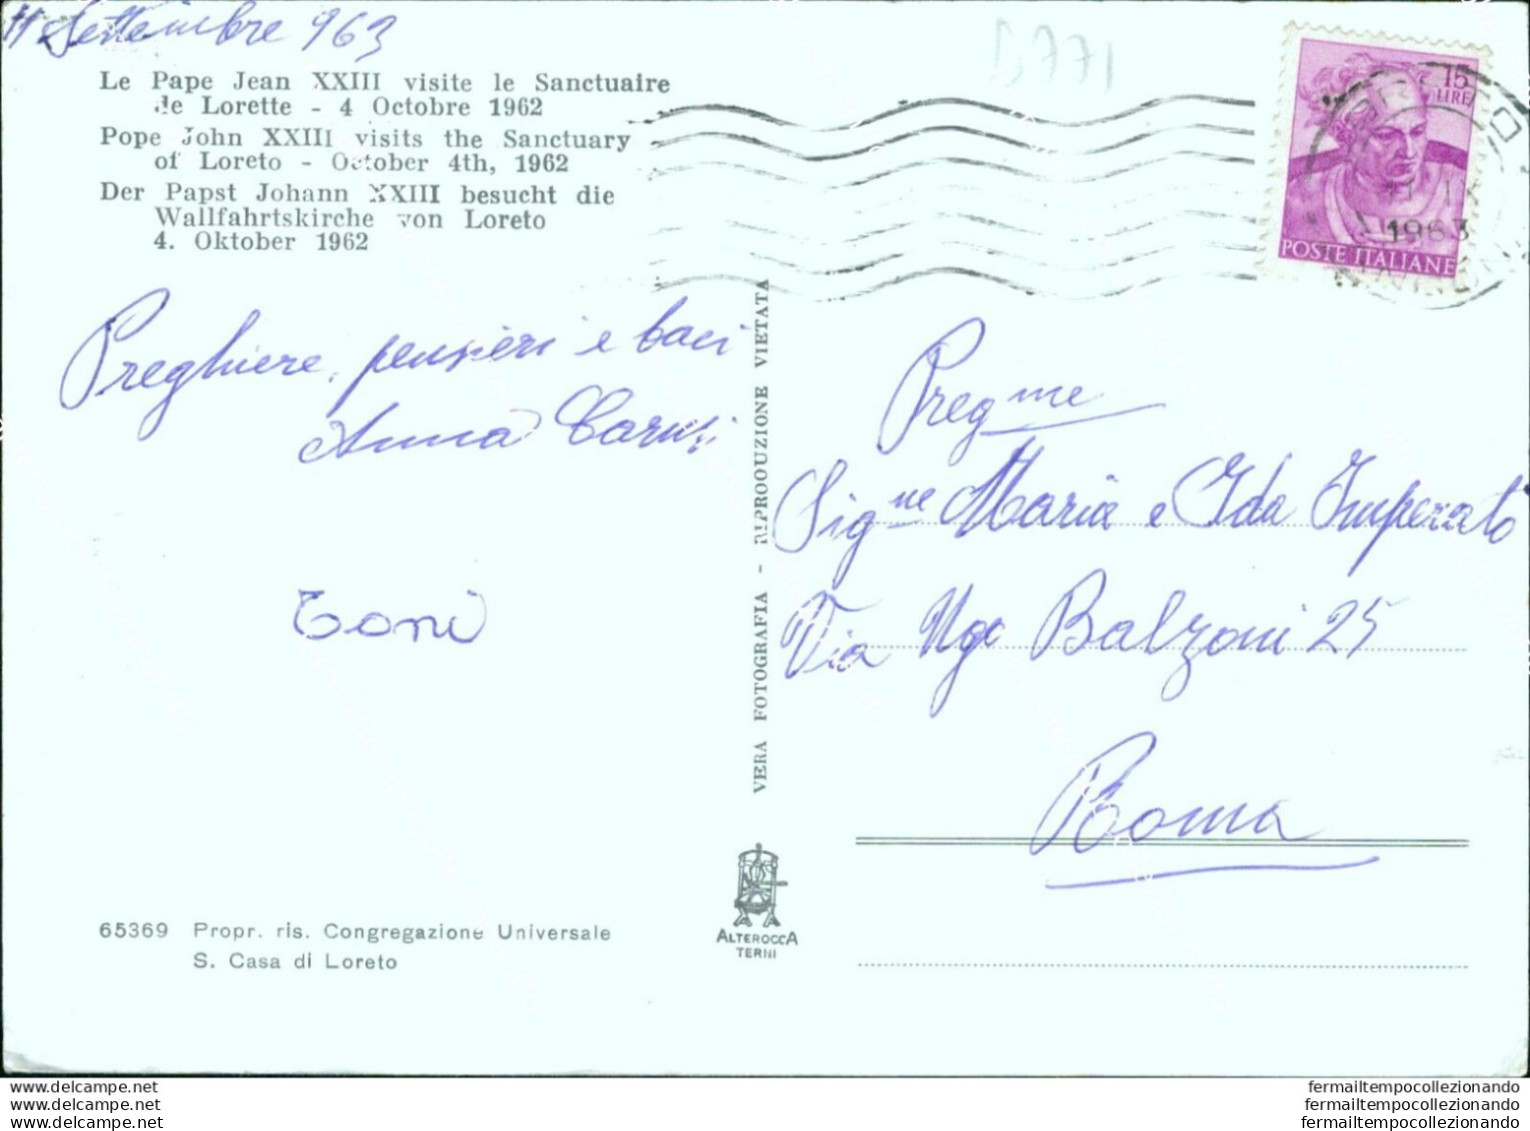 11 Settembre 963
Le Pape Jean XXIII visite le Sanctuaire
de Lorette - 4 Octobre 1962
Pope John XXIII visits the Sanctuary
of Loreto - October 4th, 1962
Der Papst Johann XXIII besucht die
Wallfahrtskirche von Loreto
4. Oktober 1962
B771
15
LIRE
1963
POSTE ITALIANE
Preghiere, pensieri e baci
Anna Carusi
Toni
VERA FOTOGRAFIA - RIPRODUZIONE VIETATA
Preg.me
Sig.ne Maria e Ida Imperato
Via Ugo Balzani 25
Roma
65369 Propr. ris. Congregazione Universale
S. Casa di Loreto
ALTEROCCA
TERNI
www.delcampe.net
www.delcampe.net
www.delcampe.net
fermailtempocollezionando
fermailtempocollezionando
fermailtempocollezionando